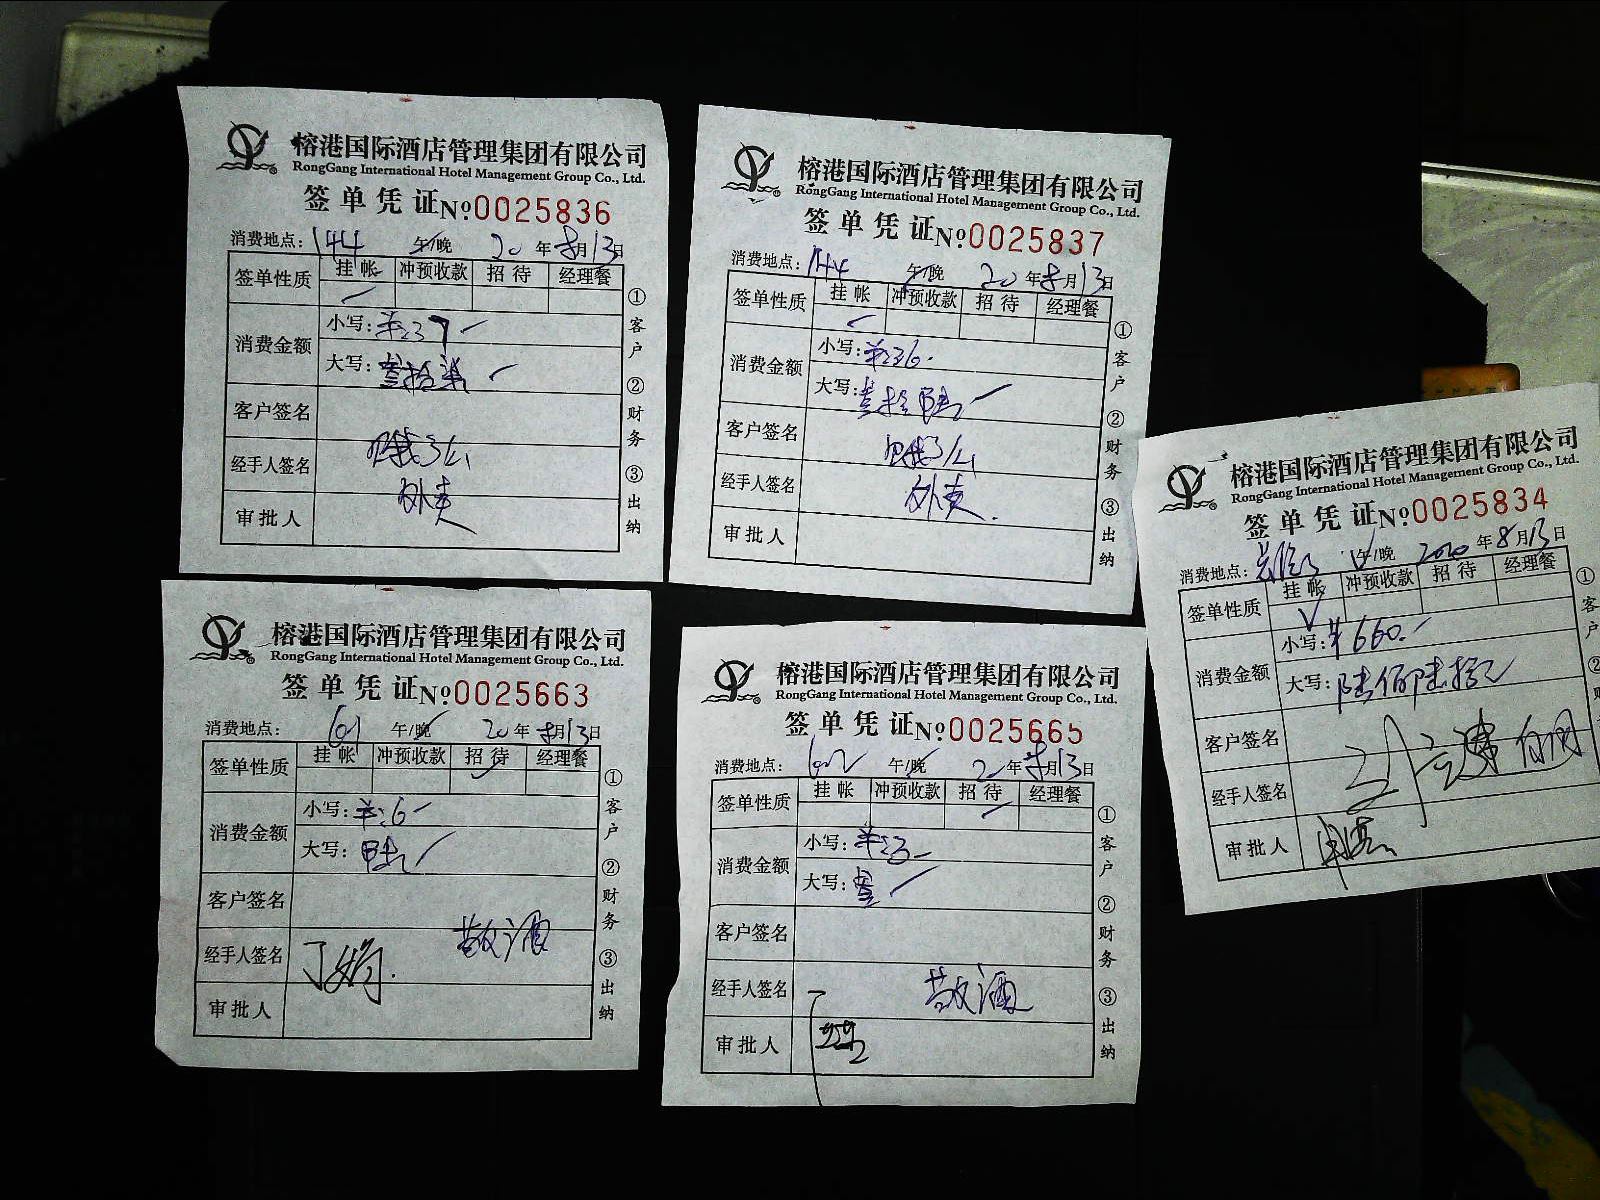 榕港国际酒店管理集团有限公司
RongGang International Hotel Management Group Co., Ltd.
签单凭证 №0025836
消费地点: 144 午/晚 20 年 8月13日
签单性质 挂帐 冲预收款 招待 经理餐
消费金额 小写: ¥:37
大写: 叁拾柒
客户签名
经手人签名
审批人
①客户 ②财务 ③出纳
榕港国际酒店管理集团有限公司
RongGang International Hotel Management Group Co., Ltd.
签单凭证 №0025837
消费地点: 144 午/晚 20 年 8月13日
签单性质 挂帐 冲预收款 招待 经理餐
消费金额 小写: ¥:36.
大写: 叁拾陆
客户签名
经手人签名
审批人
①客户 ②财务 ③出纳
榕港国际酒店管理集团有限公司
RongGang International Hotel Management Group Co., Ltd.
签单凭证 №0025834
消费地点: 午/晚 2020 年 8月13日
签单性质 挂帐 冲预收款 招待 经理餐
消费金额 小写: ¥660.-
大写: 陆佰陆拾元
客户签名
经手人签名
审批人
①客户 ②
榕港国际酒店管理集团有限公司
RongGang International Hotel Management Group Co., Ltd.
签单凭证 №0025663
消费地点: 601 午/晚 20 年 8月13日
签单性质 挂帐 冲预收款 招待 经理餐
消费金额 小写: ¥:6
大写: 陆
客户签名
敬酒
经手人签名
审批人
①客户 ②财务 ③出纳
榕港国际酒店管理集团有限公司
RongGang International Hotel Management Group Co., Ltd.
签单凭证 №0025665
消费地点: 602 午/晚 20 年 8月13日
签单性质 挂帐 冲预收款 招待 经理餐
消费金额 小写: ¥:3
大写: 叁
客户签名
经手人签名 敬酒
审批人
①客户 ②财务 ③出纳